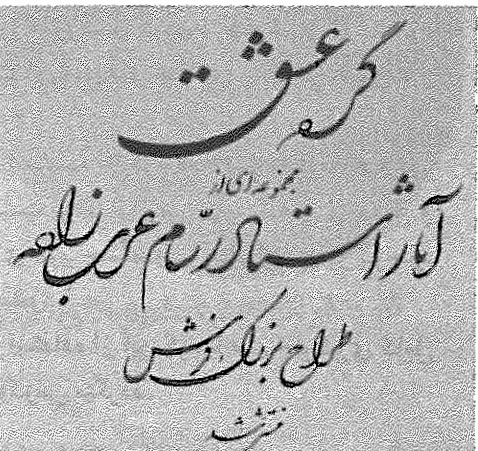 گره عشق
مجموعه‌ای از
آثار استاد رسّام عرب زاده
طراح بزرگ فرش
منتشر شد